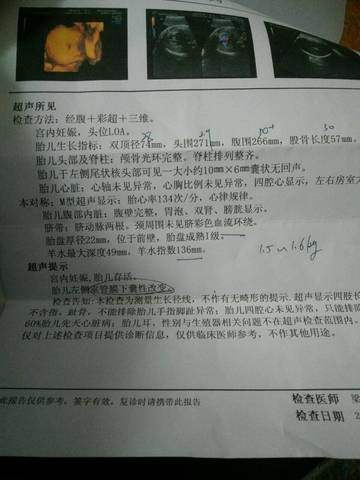 超声所见
检查方法：经腹＋彩超＋三维。
宫内妊娠，头位LOA。
胎儿生长指标：双顶径74mm，头围271mm，腹围266mm，股骨长度57mm
胎儿头部及脊柱：颅骨光环完整。脊柱排列整齐。
胎儿于左侧尾状核头部可见一大小约10mm×6mm囊状无回声。
胎儿心脏：心轴未见异常，心胸比例未见异常，四腔心显示，左右房室大
本对称：M型超声显示：胎心率134次/分，心律规律。
胎儿腹部内脏：腹壁完整。胃泡、双肾、膀胱显示。
脐带：脐动脉两根。颈周围未见脐彩色血流环绕。
胎盘厚径22mm，位于前壁，胎盘成熟I级。
羊水最大深度49mm。羊水指数136mm。
1.5~1.6kg
超声提示
宫内妊娠，胎儿存活。
胎儿左侧室管膜下囊性改变。
检查告知：本检查为测量生长径线，不作有无畸形的提示．超声显示四肢长
不含指、趾骨，不能排除胎儿手指脚趾异常；胎儿四腔心未见异常，只能排除
60%胎儿先天心脏病；胎儿耳、性别与生殖器相关问题不在超声检查范围内。
仅对上述检查项目提供诊断信息，仅供临床医师参考，不作其他用途。
此报告仅供参考，签字有效，复诊时请携带此报告
检查医师 梁
检查日期 2